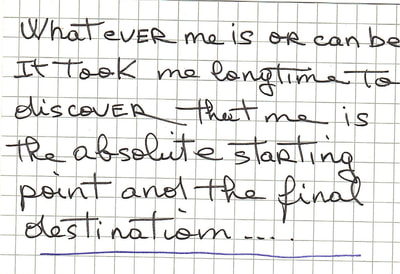 WhatEVER me is OR can be
It TOOK me longtime TO
discOVER that me is
the absolute staRting
point and the final
destination....